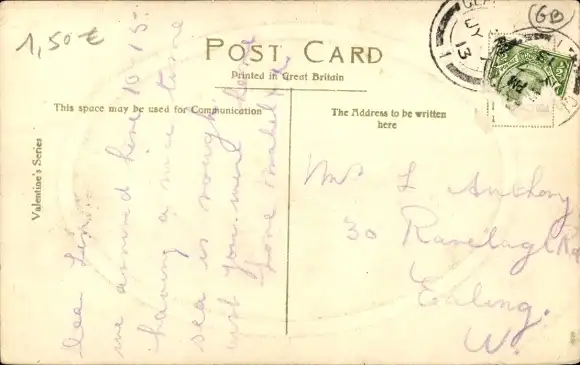 1,50 €
GB
JY
13
POST CARD
Printed in Great Britain
This space may be used for Communication
The Address to be written
here
Valentine's Series
Dear
we arrived here 10-15.
having a nice time
sea is rough
wish you were here
love
Mrs L Anthony
30 Ranelagh Rd
Ealing.
W.